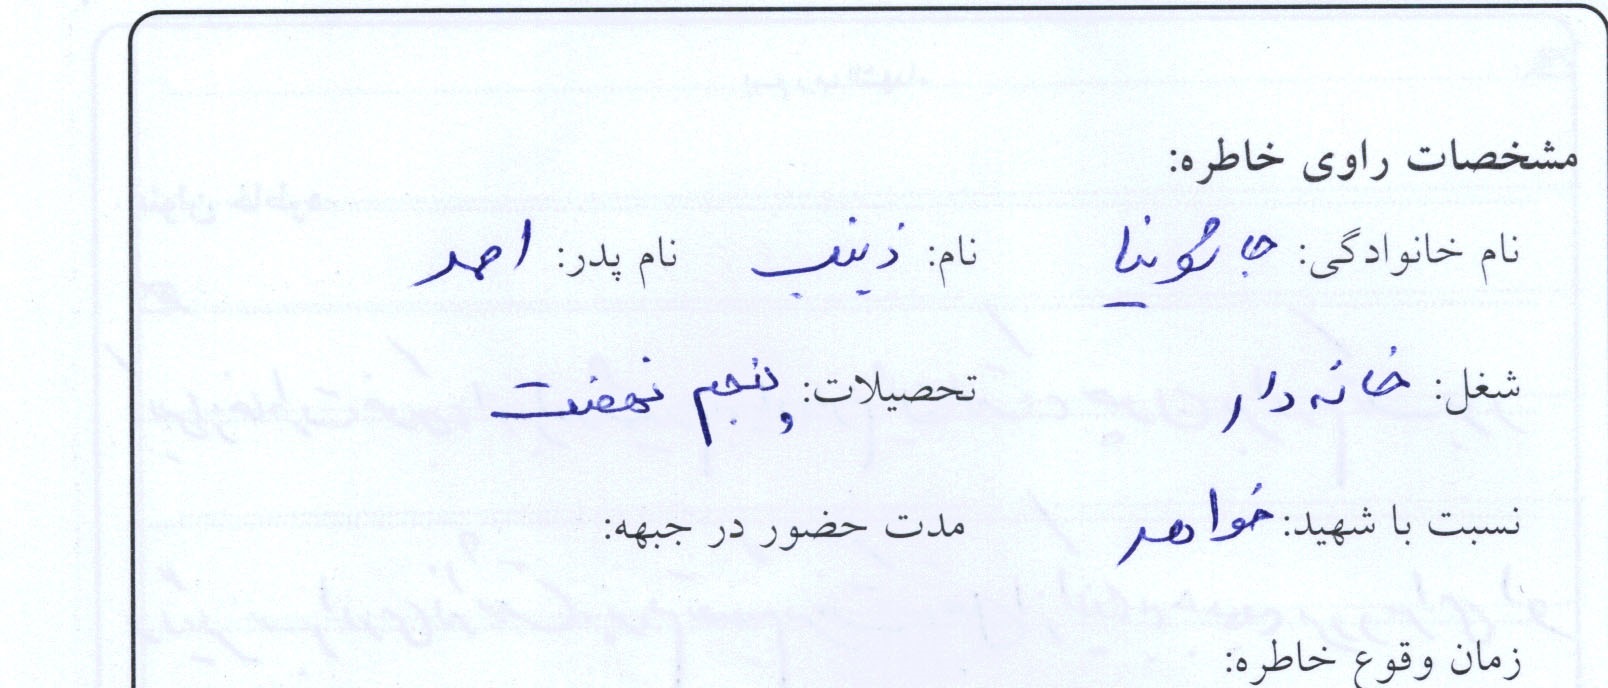 مشخصات راوی خاطره:
نام خانوادگی: نام: زینب نام پدر: احمد
شغل: خانه دار تحصیلات: پنجم نهضت
نسبت با شهید: خواهر مدت حضور در جبهه:
زمان وقوع خاطره: